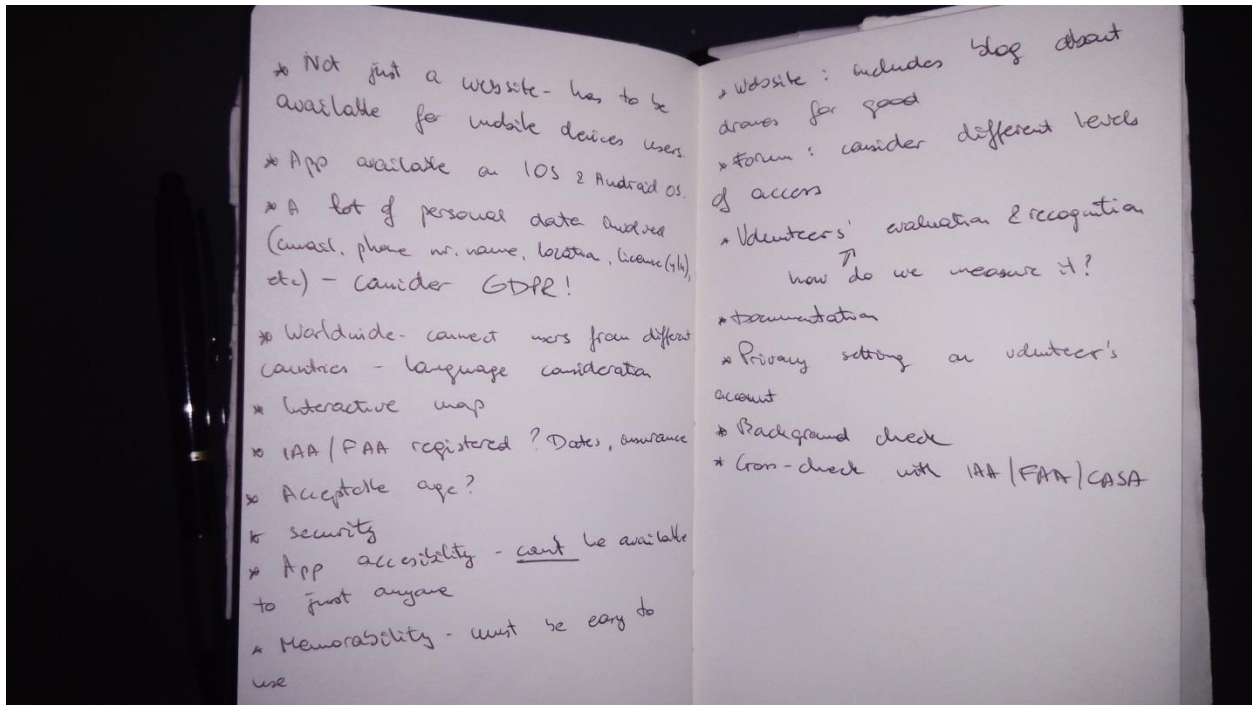 * Not just a website - has to be
available for mobile devices users.
* App available on IOS & Android OS.
* A lot of personal data involved
(email, phone nr. name, location, license (y/n),
etc) - consider GDPR!
* Worldwide - connect users from different
countries - language consideration
* Interactive map
* IAA/FAA registered? Dates, insurance
* Acceptable age?
* security
* App accesibility - can't be available
to just anyone
* Memorability - must be easy to
use
* Website: includes blog about
drones for good
* Forum: consider different levels
of access
* Volunteers' evaluation & recognition
↑
how do we measure it?
* Documentation
* Privacy setting on volunteer's
account
* Background check
* Cross-check with IAA/FAA/CASA